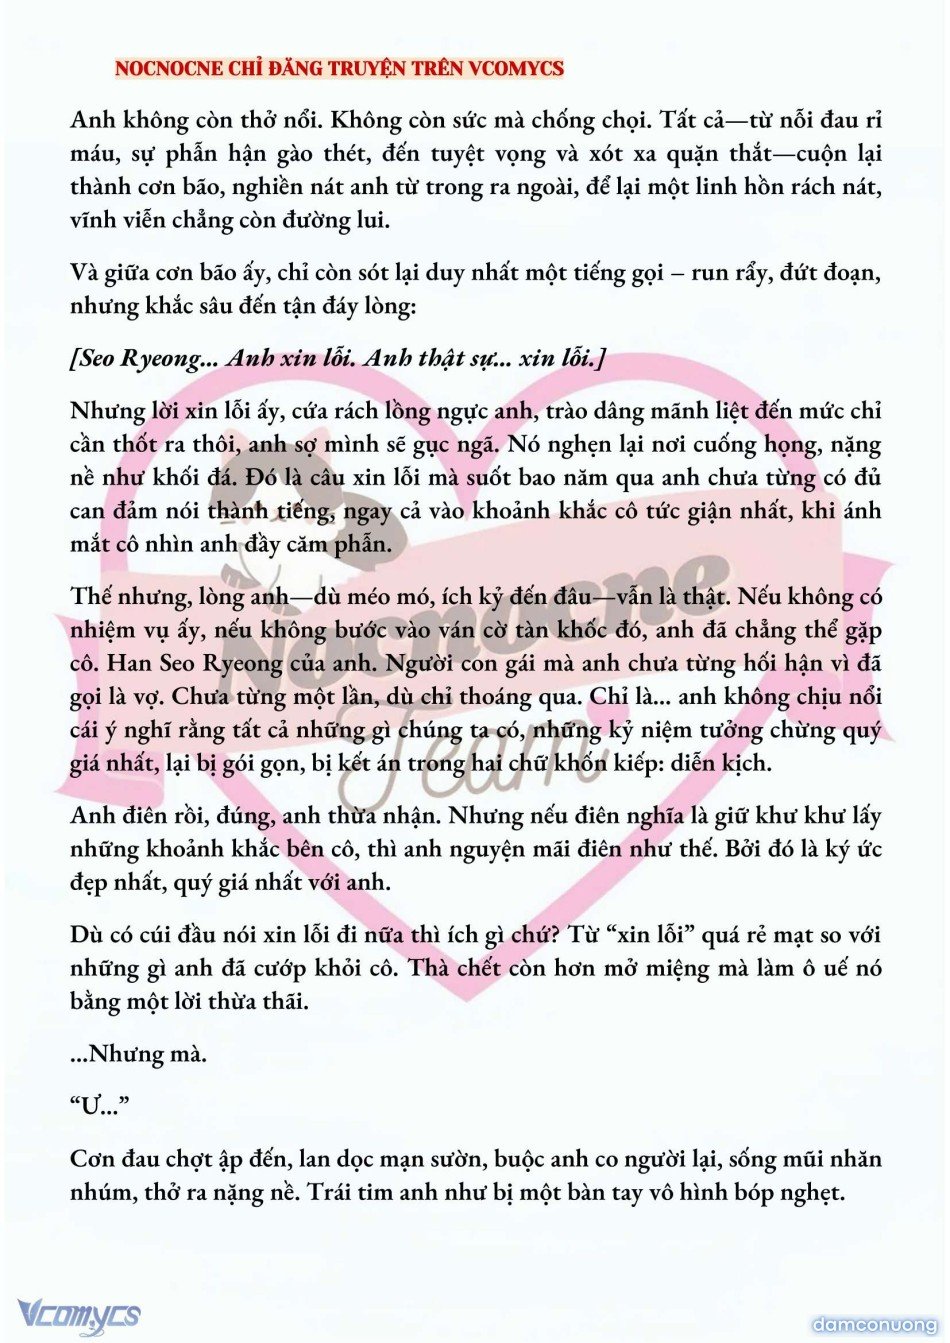 NOCNOCNE CHỈ ĐĂNG TRUYỆN TRÊN VCOMYCS
Anh không còn thở nổi. Không còn sức mà chống chọi. Tất cả—từ nỗi đau rỉ
máu, sự phẫn hận gào thét, đến tuyệt vọng và xót xa quặn thắt—cuộn lại
thành cơn bão, nghiền nát anh từ trong ra ngoài, để lại một linh hồn rách nát,
vĩnh viễn chẳng còn đường lui.
Và giữa cơn bão ấy, chỉ còn sót lại duy nhất một tiếng gọi – run rẩy, đứt đoạn,
nhưng khắc sâu đến tận đáy lòng:
[Seo Ryeong... Anh xin lỗi. Anh thật sự... xin lỗi.]
Nhưng lời xin lỗi ấy, cứa rách lồng ngực anh, trào dâng mãnh liệt đến mức chỉ
cần thốt ra thôi, anh sợ mình sẽ gục ngã. Nó nghẹn lại nơi cuống họng, nặng
nề như khối đá. Đó là câu xin lỗi mà suốt bao năm qua anh chưa từng có đủ
can đảm nói thành tiếng, ngay cả vào khoảnh khắc cô tức giận nhất, khi ánh
mắt cô nhìn anh đầy căm phẫn.
Thế nhưng, lòng anh—dù méo mó, ích kỷ đến đâu—vẫn là thật. Nếu không có
nhiệm vụ ấy, nếu không bước vào ván cờ tàn khốc đó, anh đã chẳng thể gặp
cô. Han Seo Ryeong của anh. Người con gái mà anh chưa từng hối hận vì đã
gọi là vợ. Chưa từng một lần, dù chỉ thoáng qua. Chỉ là... anh không chịu nổi
cái ý nghĩ rằng tất cả những gì chúng ta có, những kỷ niệm tưởng chừng quý
giá nhất, lại bị gói gọn, bị kết án trong hai chữ khốn kiếp: diễn kịch.
Anh điên rồi, đúng, anh thừa nhận. Nhưng nếu điên nghĩa là giữ khư khư lấy
những khoảnh khắc bên cô, thì anh nguyện mãi điên như thế. Bởi đó là ký ức
đẹp nhất, quý giá nhất với anh.
Dù có cúi đầu nói xin lỗi đi nữa thì ích gì chứ? Từ “xin lỗi” quá rẻ mạt so với
những gì anh đã cướp khỏi cô. Thà chết còn hơn mở miệng mà làm ô uế nó
bằng một lời thừa thãi.
...Nhưng mà.
“Ư...”
Cơn đau chợt ập đến, lan dọc mạn sườn, buộc anh co người lại, sống mũi nhăn
nhúm, thở ra nặng nề. Trái tim anh như bị một bàn tay vô hình bóp nghẹt.
Nocnocne
Team
Vcomycs
damconuong